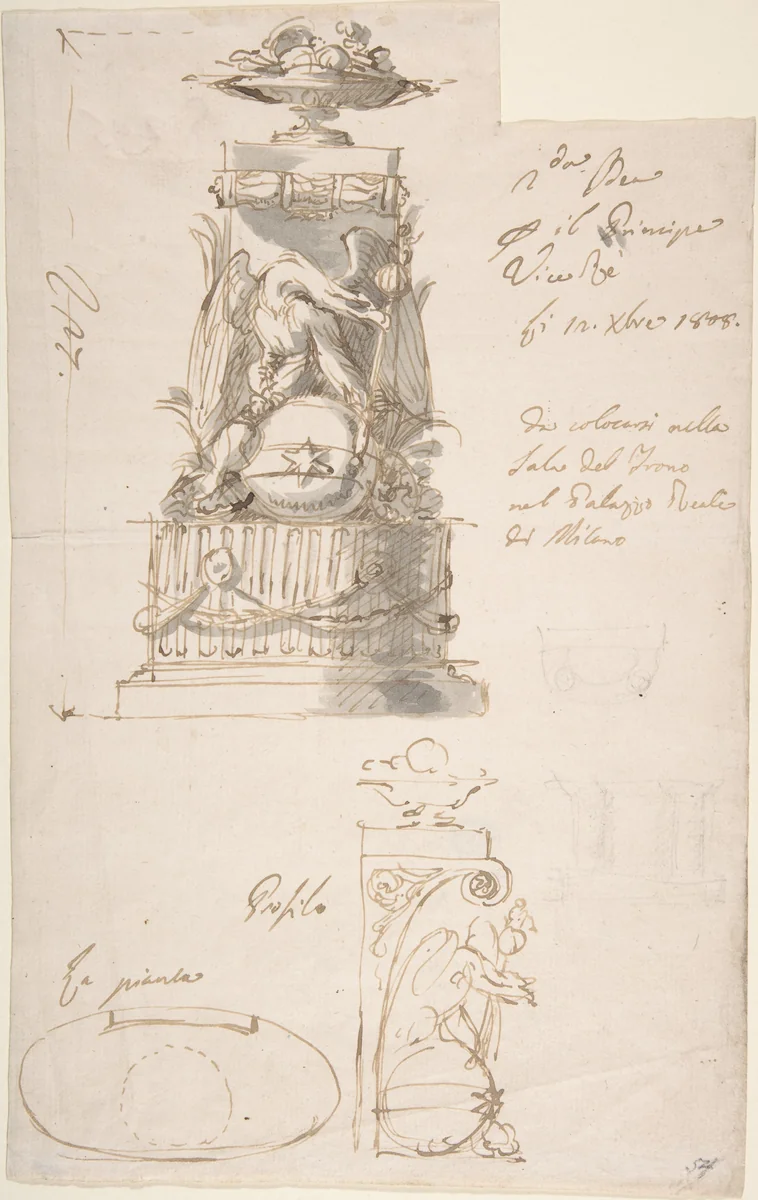 2.da Idea
P il Principe
Vice Rè
Li 12. Xbre 1808.
da colocarsi nella
Sala del Trono
nel Palazzo Reale
di Milano
Profilo
La pianta